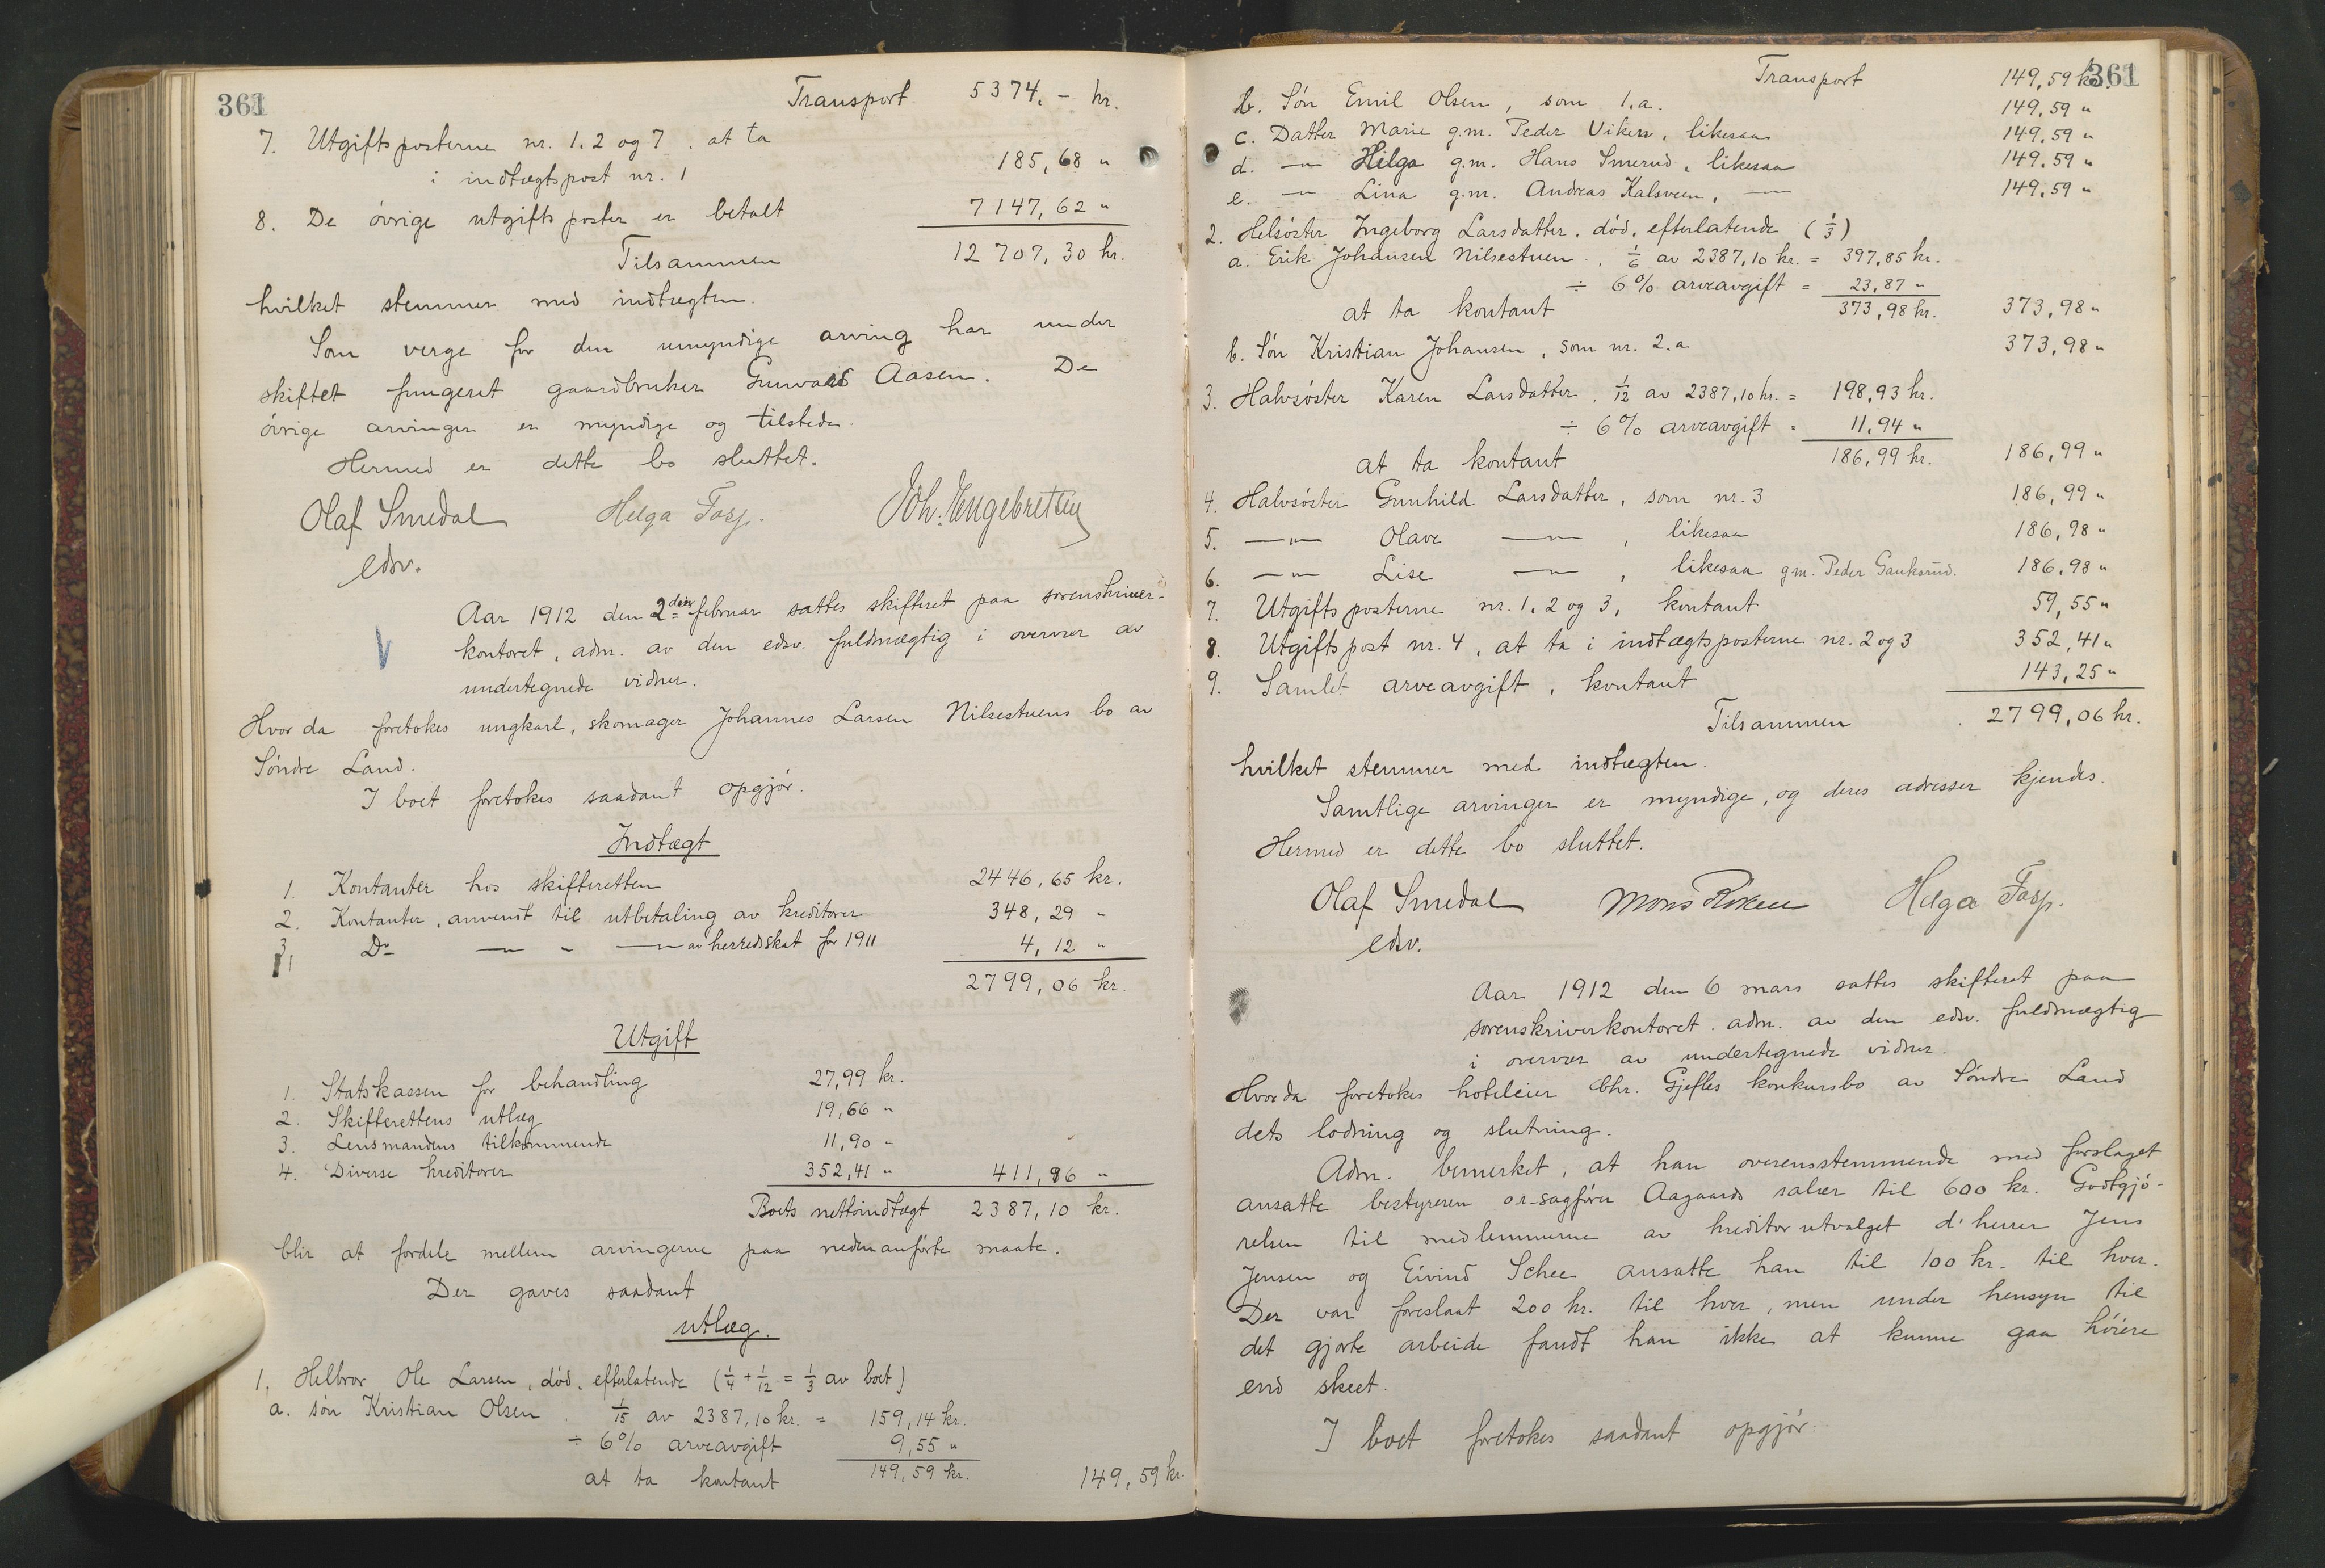 361
Transport 5374,- kr.
7. Utgiftsposterne nr. 1, 2 og 7, at ta
i indtægtspost nr. 1 185,68 "
8. De övrige utgiftsposter er betalt 7147,62 "
Tilsammen 12707,30 kr.
hvilket stemmer med indtægten.
Som verge for den umyndige arving har under
skiftet fungeret gaardbruker Gunvald Aasen. De
övrige arvinger er myndige og tilstede.
Hermed er dette bo sluttet.
Olaf Smedal Helga Fasp. Joh. Engebretsen
edsv.
Aar 1912 den 2den februar sattes skifteret paa sorenskriver-
kontoret, adm. av den edsv. fuldmægtig i overvær av
undertegnede vidner.
Hvor da foretokes ungkarl, skomager Johannes Larsen Nilsestuens bo av
Söndre Land.
I boet foretokes saadant opgjör.
Indtægt
1. Kontanter hos skifteretten 2446,65 kr.
2. Kontanter, anvendt til utbetaling av kreditorer 348,29 "
3. Do — " — av herredsskat for 1911 4,12 "
2799,06 kr.
Utgift
1. Statskassen for behandling 27,99 kr.
2. Skifterettens utlæg 19,66 "
3. Lensmandens tilkommende 11,90 "
4. Diverse kreditorer 352,41 " 411,96 "
Boets nettoindtægt 2387,10 kr.
blir at fordele mellem arvingerne paa nedenanförte maate.
Der gaves saadant
utlæg.
1. Helbror Ole Larsen, död, efterlatende (1/4 + 1/12 = 1/3 av boet)
a. sön Kristian Olsen. 1/15 av 2387,10 kr. = 159,14 kr.
÷ 6% arveavgift 9,55 "
at ta kontant 149,59 kr. 149,59 kr.
361
Transport 149,59 kr.
b. Sön Emil Olsen, som 1.a. 149,59 "
c. Datter Marie g.m. Peder Viken, likesaa 149,59 "
d. —"— Helga g.m. Hans Smerud, likesaa 149,59 "
e. —"— Lina g.m. Andreas Kalsveen, —"— 149,59 "
2. Helsöster Ingeborg Larsdatter, död, efterlatende (1/3)
a. Erik Johansen Nilsestuen, 1/6 av 2387,10 kr. = 397,85 kr.
÷ 6% arveavgift = 23,87 "
at ta kontant 373,98 kr. 373,98 "
b. Sön Kristian Johansen, som nr. 2.a 373,98 "
3. Halvsöster Karen Larsdatter, 1/12 av 2387,10 kr. = 198,93 kr.
÷ 6% arveavgift = 11,94 "
at ta kontant 186,99 kr. 186,99 "
4. Halvsöster Gunhild Larsdatter, som nr. 3 186,99 "
5. —"— Olave —"—, likesaa 186,98 "
6. —"— Lise —"—, likesaa gm. Peder Gauksrud. 186,98 "
7. Utgiftsposterne nr. 1, 2 og 3, kontant 59,55 "
8. Utgiftspost nr. 4, at ta i indtægtsposterne nr. 2 og 3 352,41 "
9. Samlet arveavgift, kontant 143,25 "
Tilsammen 2799,06 kr.
hvilket stemmer med indtægten.
Samtlige arvinger er myndige, og deres adresser kjendes.
Hermed er dette bo sluttet.
Olaf Smedal Mons Röken Helga Fasp.
edsv.
Aar 1912 den 6 mars sattes skifteret paa
sorenskriverkontoret, adm. av den edsv. fuldmægtig
i overvær av undertegnede vidner.
Hvor da foretokes hoteleier Chr. Gjefles konkursbo av Söndre Land
dets lodning og slutning.
Adm. bemerket, at han overensstemmende med forslaget
ansatte bestyreren o.r.sagförer Aagaards salær til 600 kr. Godtgjö-
relsen til medlemmerne av kreditorutvalget d'herrer Jens
Jensen og Eivind Schee ansatte han til 100 kr. til hver.
Der var foreslaat 200 kr. til hver, men under hensyn til
det gjorte arbeide fandt han ikke at kunne gaa höiere
end skeet.
I boet foretokes saadant opgjör: